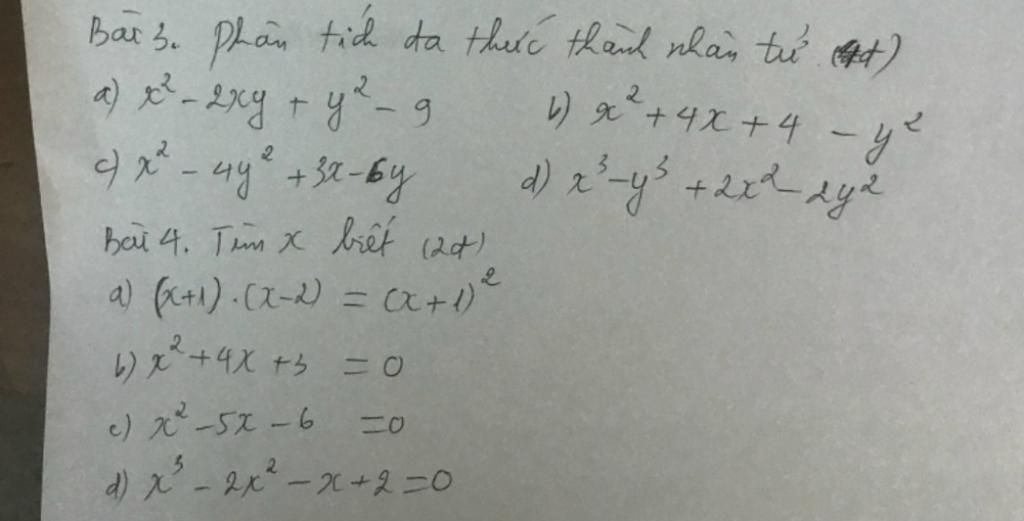 Bài 3. Phân tích đa thức thành nhân tử (4đ)
a) x² - 2xy + y² - 9 b) x² + 4x + 4 - y²
c) x² - 4y² + 3x - 6y d) x³ - y³ + 2x² - 2y²
Bài 4. Tìm x biết (2đ)
a) (x+1).(x-2) = (x+1)²
b) x² + 4x + 3 = 0
c) x² - 5x - 6 = 0
d) x³ - 2x² - x + 2 = 0